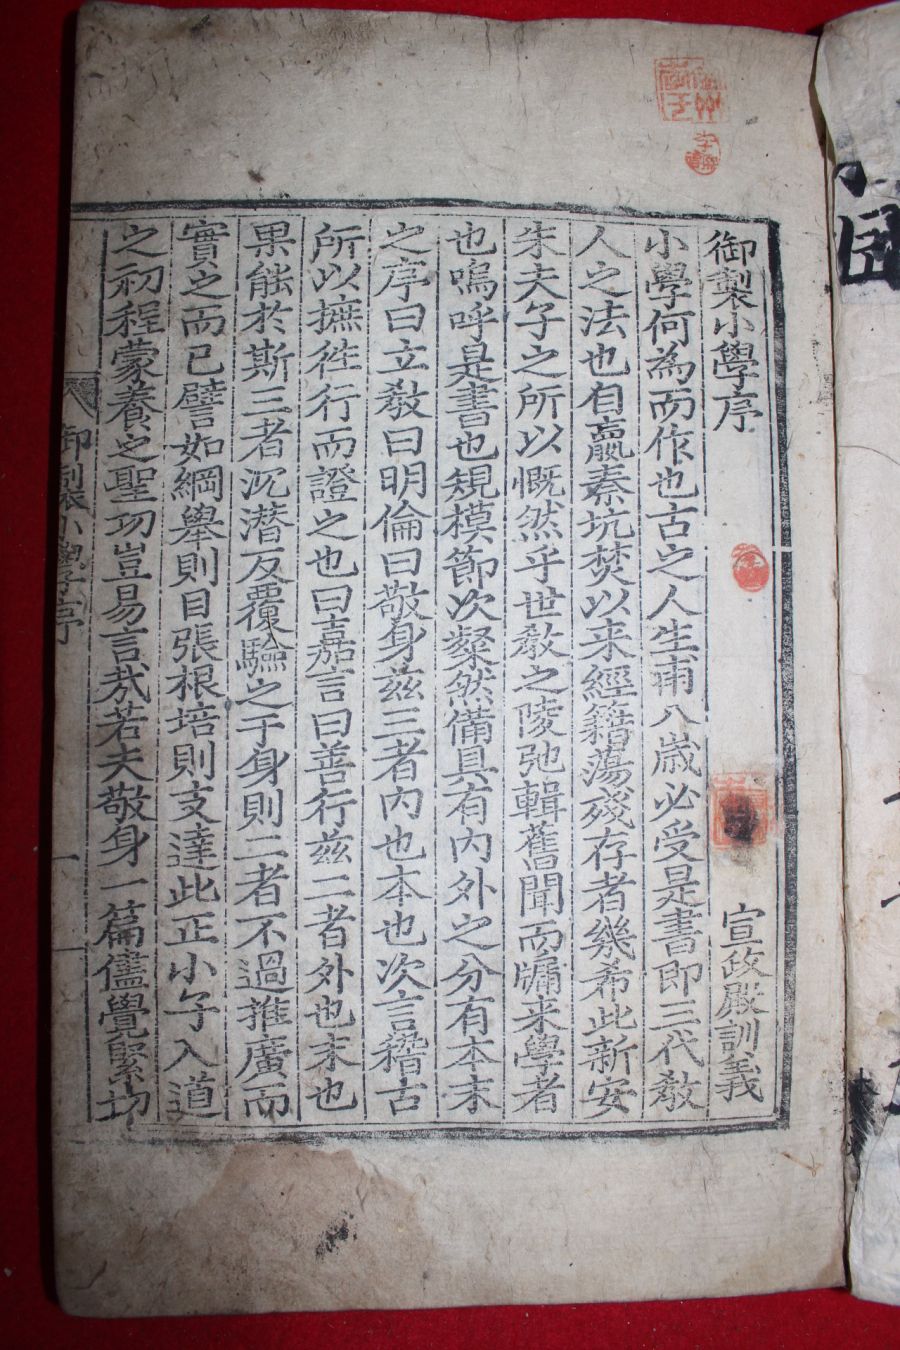 御製小學序
宣政殿訓義
小學何為而作也古之人生甫八歲必受是書即三代教
人之法也自嬴秦坑焚以来經籍蕩殘存者幾希此新安
朱夫子之所以慨然乎世教之陵弛輯舊聞而牖来學者
也嗚呼是書也規模節次粲然備具有內外之分有本末
之序曰立教曰明倫曰敬身茲三者內也本也次言稽古
所以摭徃行而證之也曰嘉言曰善行茲二者外也末也
果能於斯三者沉潜反覆驗之于身則二者不過推廣而
實之而已譬如綱舉則目張根培則支達此正小子入道
之初程蒙養之聖功豈易言㢤若夫敬身一篇儘覺緊切
御製小學序
一